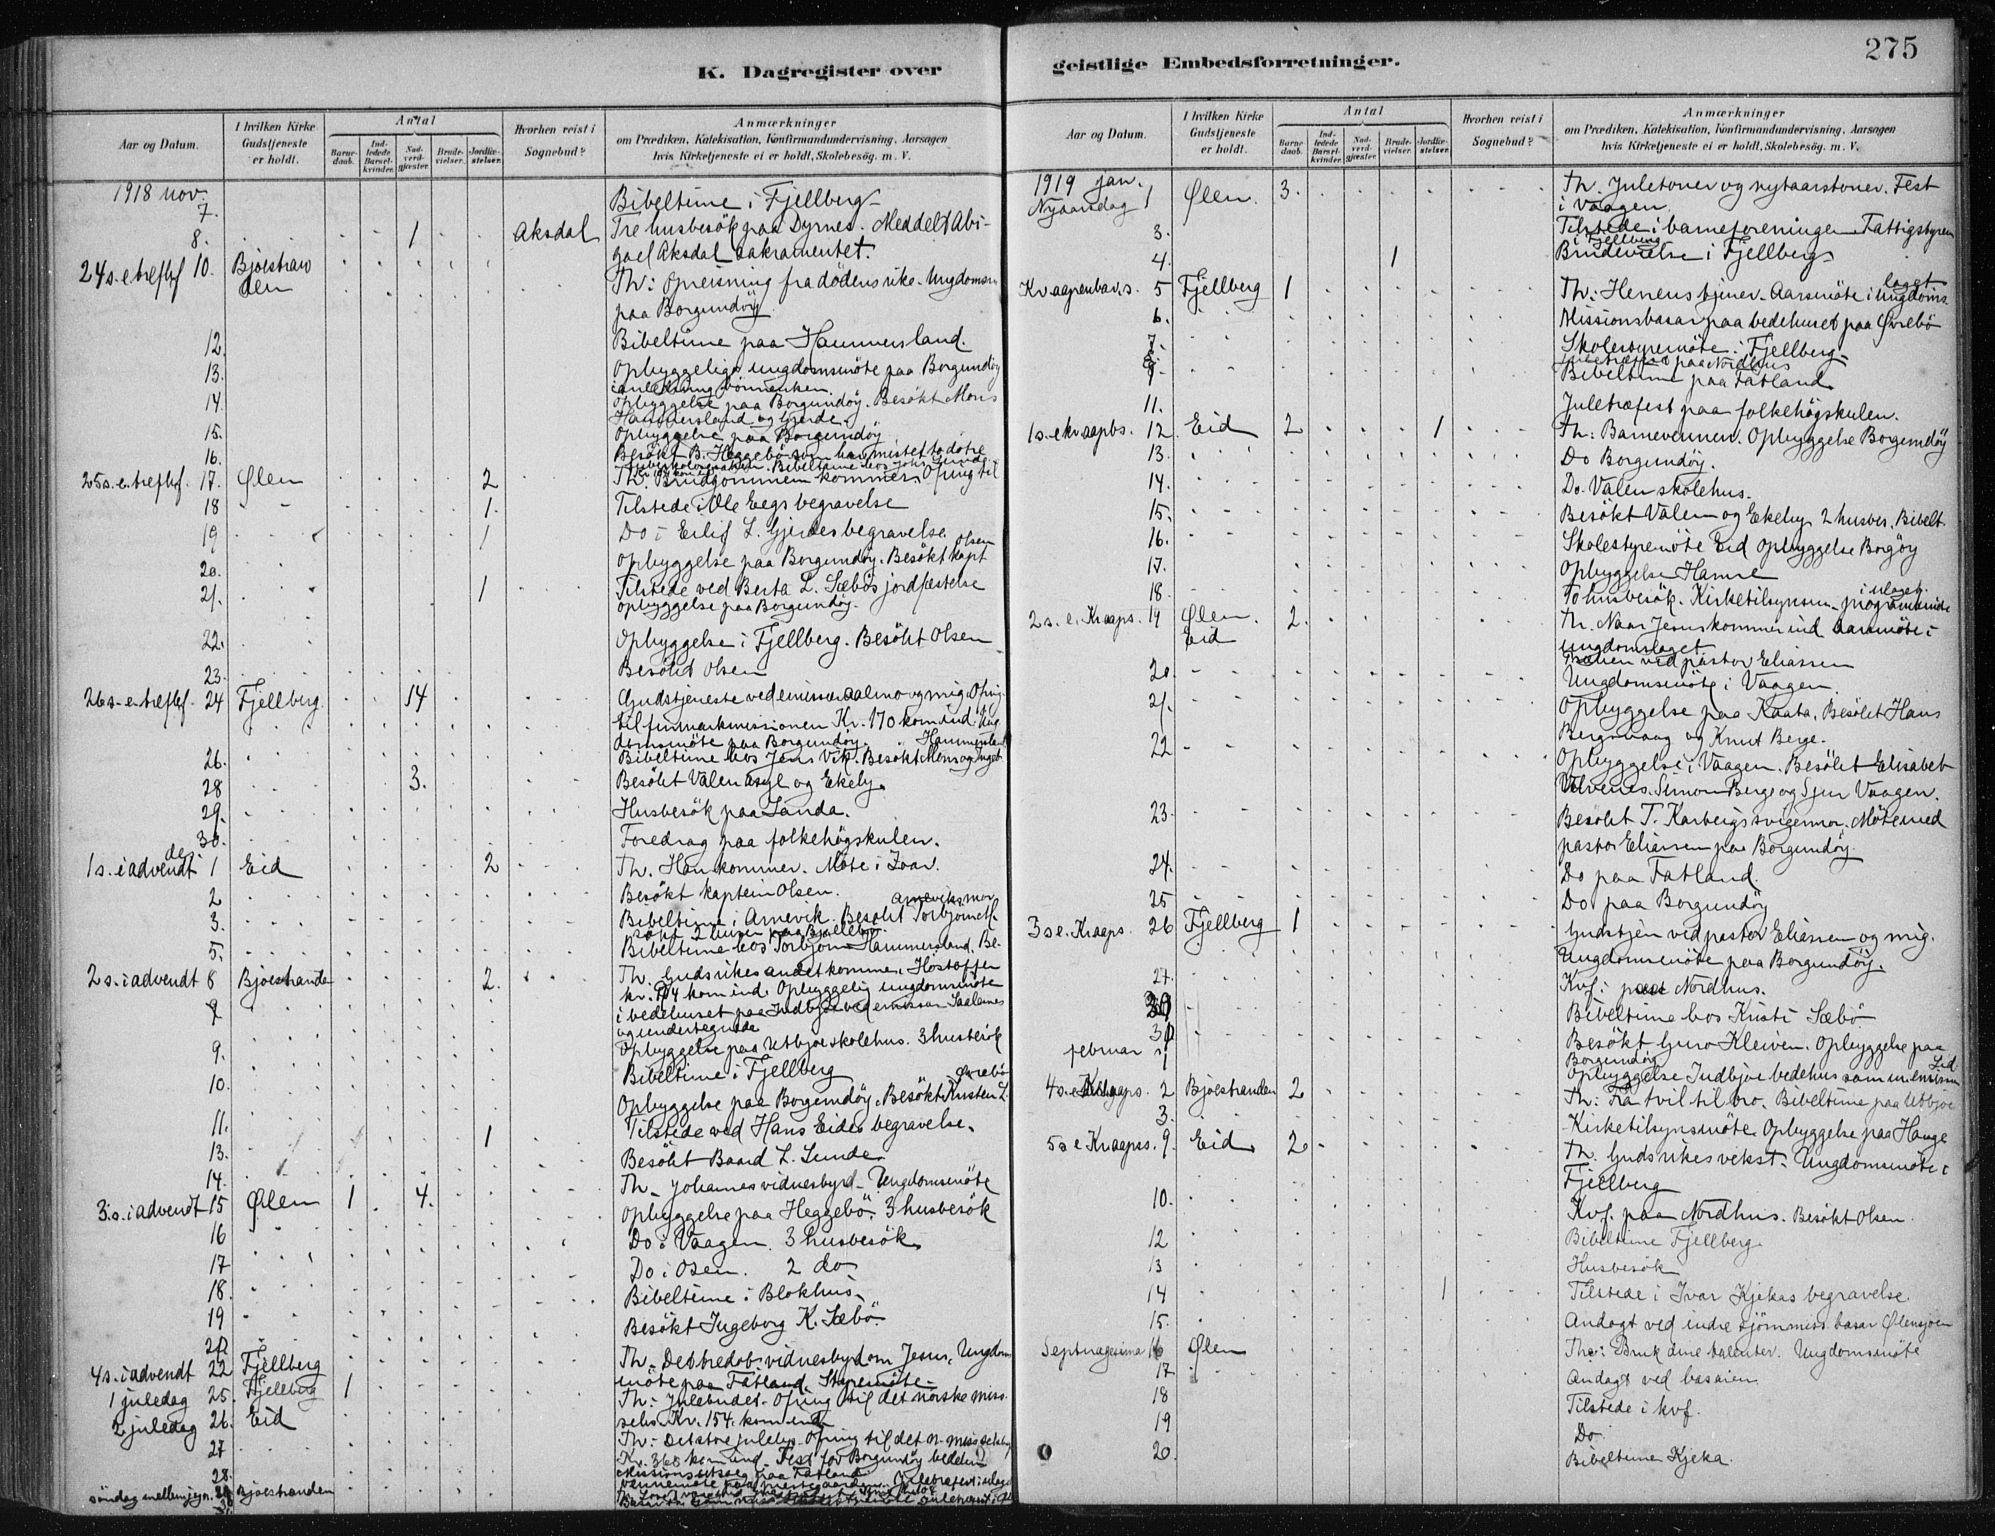 K. Dagregister over
Aar og Datum.
I hvilken Kirke Gudstjeneste er holdt.
Antal
Barnedaab.
Indledede Barselkvinder.
Nadverdgjæster.
Brudevielser.
Jordfæstelser.
Hvorhen reist i Sognebud?
Anmærkninger
om Prædiken, Katekisation, Konfirmandundervisning, Aarsagen
hvis Kirketjeneste ei er holdt, Skolebesøg. m. V.
1918 nov.
7. Bibeltime i Fjellberg
8. 1 Aksdal Tre husbesök paa Dyrnes. Meddelt Abi-
gael Aksdal sakramentet.
24 s. e. trefhf 10. Bjoestran
den Th: Opreisning fra dödens rike. Ungdomsm
paa Borgundöy.
12. Bibeltime paa Hammersland.
13. Opbyggelig ungdomsmöte paa Borgundöy
i anledning bönneuken
14. Opbyggelse paa Borgundöy. Besökt Mons
Hammersland og Gjerde.
15. Opbyggelse paa Borgundöy
16. Besökt B. Heggebö som har mistet to dötre
25 s. e. trefhf. 17. Ølen 2 Th. Brudgommen kommer. Ofring til
18 1. Tilstede i Ole Eegs begravelse
19 1 Do i Erlif L. Gjerdes begravelse
20. Opbyggelse paa Borgundöy. Besökt kapt Olsen
21. 1 Tilstede ved Berta L. Sæbös jordfæstelse
opbyggelse paa Borgundöy.
22. Opbyggelse i Fjellberg. Besökt Olsen
23. Besökt Olsen
26 s. e. trefhf. 24 Fjellberg. 14 Gudstjeneste ved emissær Aalmo og mig. Ofring
til finmarkmissionen Kr. 170 kom ind. Ung
domsmöte paa Borgundöy. Hammersland
26. Bibeltime hos Jens Vik. Besökt Mons og Ingeb.
28 3. Besökt Valen asyl og Ekely.
29. Husbesök paa Sanda.
30. Foredrag paa folkehögskulen.
des.
1 s. i advendt 1 Eid 2 Th. Han kommer. Möte i Zoar.
2 Besökt kaptein Olsen.
3. Bibeltime i Arnevik. Besökt Torbjörn Arneviks mor
sökt 2 huser paa Bjellebö.
5. Bibeltime hos Torbjörn Hammersland. Be-
2 s. i advendt 8 Bjoestranden 2. Th. Guds rikes andet komme. Höstoffer
kr. 104 kom ind. Opbyggelig ungdomsmöte
i bedehuset paa Indbjoe ved emissær Saalesnes
og undertegnede
9. Opbyggelse paa Utbjoe skolehus. 3 husbesök
10. Bibeltime i Fjellberg
11. Opbyggelse paa Borgundöy. Besökt Kristen L. Øvrebö
13. 1 Tilstede ved Hans Eides begravelse.
14. Besökt Baard L. Sunde
3. s. i advendt 15 Ølen 1 4. Th. Johannes vidnesbyrd. Ungdomsmöte
16 Opbyggelse paa Heggebö. 3 husbesök
17 Do i Vaagen. 3 husbesök
18. Do i Osen. 2 do
19 Bibeltime i Blokhus.
20 Besökt Ingeborg K. Sæbö.
4 s. i advendt 22 Fjellberg Th. Det tredobs vidnesbyrd om Jesus. Ungdoms
möte paa Fatland. Styremöte
1 juledag 25. Fjellberg 1 Th: Julebudet. Ofring til det norske miss.
selsk. Kr. 154. kom ind
2 juledag 26. Eid Th: Det store julelys. Ofring til det n. misselskap
27 Kr. 368 kom ind. Fest for Borgundöy bedehus
28. Missionsutsalg paa Fatland
söndag mellem jogn. Bjoestranden
geistlige Embedsforretninger.
275
Aar og Datum.
I hvilken Kirke Gudstjeneste er holdt.
Antal
Barnedaab.
Indledede Barselkvinder.
Nadverdgjæster.
Brudevielser.
Jordfæstelser.
Hvorhen reist i Sognebud?
Anmærkninger
om Prædiken, Katekisation, Konfirmandundervisning, Aarsagen
hvis Kirketjeneste ei er holdt, Skolebesøg. m. V.
1919 jan.
Nyaarsdag 1 Ølen. 3. Th. Juletoner og nytaarstoner. Fest
i Vaagen.
3. Tilstede i barneforeningen Fattigstyrem
i Fjellberg
4. 1 Brudevielse i Fjellberg
Kr. aapenbar. s. 5 Fjellberg 1 Th: Herrens tjener. Aarsmöte i Ungdomslaget
6. Missionsbasar paa bedehuset paa Øvrebö
7. Skolestyremöte i Fjellberg
8. Juletræfest paa Nordhus
9 Bibeltime paa Fatland
11. Juletræfest paa folkehögskulen.
1 s. e. kr. aapb. 12 Eid 2 1 Th: Barnevennen. Opbyggelse Borgundöy
13. Do Borgundöy.
14. Do. Valen skolehus.
15. Besökt Valen og Ekely 2 husbes. Bibelt.
16. Skolestyremöte Eid Opbyggelse Borgöy
17. Opbyggelse Hamre
18 To husbesök. Kirketilsynsm. programmöte i ulaget
2 s. e. Kr. aaps. 19 Ølen.
Eid 2. Th. Naar Jesus kommer ind aarsmöte i
ungdomslaget
Talen ved pastor Eliassen
20. Ungdomsmöte i Vaagen.
21. Opbyggelse paa Kaata. Besökt Hans
Bergsvaag og Knut Berge.
22 Opbyggelse i Vaagen. Besökt Elisabet
Ulvenes. Simon Berge og Sjur Vaagen.
23. Besökt T. Karbergs svigermor. Möte med
pastor Eliassen paa Borgundöy
24. Do paa Fatland.
25 Do paa Borgundöy
3 s e. Kr. aaps. 26 Fjellberg 1 Gudstjen ved pastor Eliassen og mig.
Ungdomsmöte paa Borgundöy.
27. Kvf. paa Nordhus.
30 Bibeltime hos Kristi Sæbö
31 Besökt Guro Kleiven. Opbyggelse paa
Borgundöy
februar 1 Opbyggelse Indbjoe bedehus sam m. emissær Lid
4 s. e. Kr. aaps. 2 Bjoestranden 2 Th: Fra tvil til tro. Bibeltime paa Utbjoe
3. Kirketilsynsmöte. Opbyggelse paa Hauge
5 s e Kr. aaps. 9. Eid 2 Th. Guds rikes vekst. Ungdomsmöte i
Fjellberg
10. Kvf. paa Nordhus. Besökt Olsen.
12 Bibeltime Fjellberg
13 Husbesök
14 1 Tilstede i Ivar Kjekas begravelse.
15. Andagt ved indre sjömmiss. basar Ølensjoen
Septuagesima 16 Ølen Th: Bruk dine talenter. Ungdomsmöte
17 Andagt ved basaren
18 Tilstede i kvf.
19 Do
20. Bibeltime Kjeka.